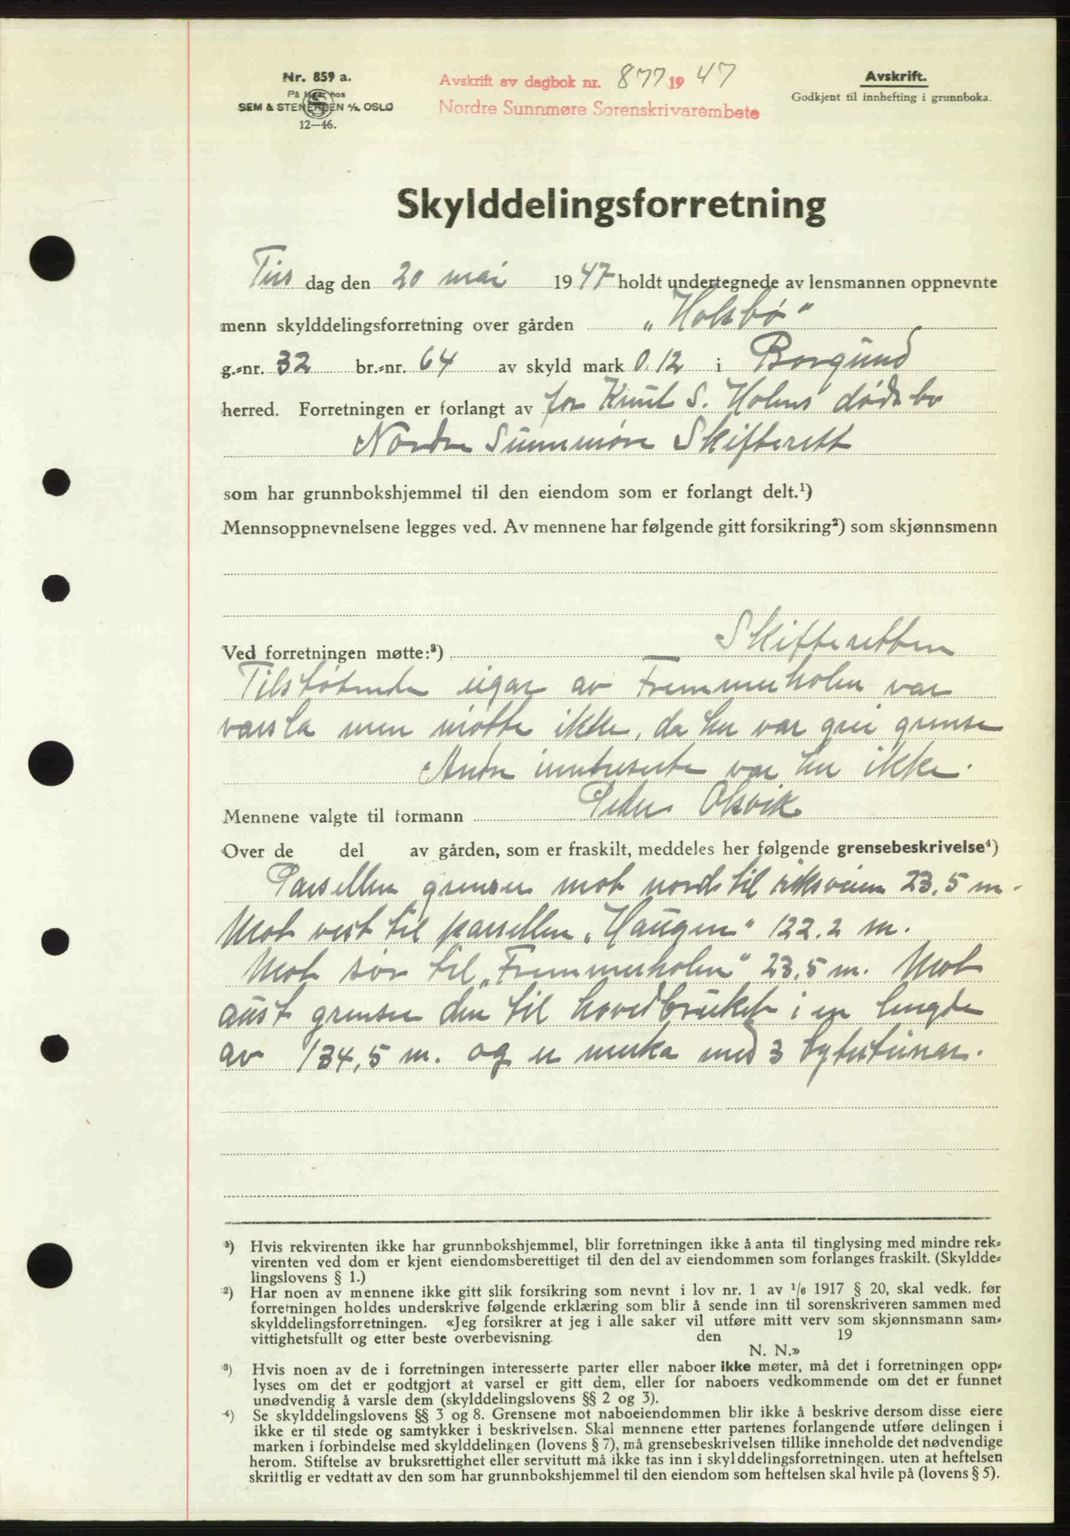 Nr. 859 a.
På lager hos
SEM & STENERSEN A/S, OSLO
12—46.
Avskrift av dagbok nr. 877 19 47
Nordre Sunnmøre Sorenskrivarembete
Avskrift.
Godkjent til innhefting i grunnboka.
Skylddelingsforretning
Tirs dag den 20 mai 1947 holdt undertegnede av lensmannen oppnevnte
menn skylddelingsforretning over gården „Holsbø"
g.-nr. 32 br.-nr. 64 av skyld mark 0.12 i Borgund
herred. Forretningen er forlangt av for Knut S. Holens dødsbo
Nordre Sunnmøre Skifterett
som har grunnbokshjemmel til den eiendom som er forlangt delt.¹)
Mennsoppnevnelsene legges ved. Av mennene har følgende gitt forsikring²) som skjønnsmenn
Ved forretningen møtte:³) Skifteretten
Tilstøtende eigar av Fremmerholen var
varsla men møtte ikke, da her var grei grense
Andre interesserte var her ikke.
Mennene valgte til formann Peder Olsvik
Over de del av gården, som er fraskilt, meddeles her følgende grensebeskrivelse⁴)
Parsellen grenser mot nord til riksveien 23,5 m.
Mot vest til parsellen „Haugen" 122.2 m.
Mot sør til „Fremmerholen" 23,5 m. Mot
aust grenser den til hovedbruket i en lengde
av 134,5 m. og er merka med 3 bytesteinar.
¹) Hvis rekvirenten ikke har grunnbokshjemmel, blir forretningen ikke å anta til tinglysing med mindre rek-
virenten ved dom er kjent eiendomsberettiget til den del av eiendommen som forlanges fraskilt. (Skyldde-
lingslovens § 1.)
²) Har noen av mennene ikke gitt slik forsikring som nevnt i lov nr. 1 av ¹/₆ 1917 § 20, skal vedk. før
forretningen holdes underskrive følgende erklæring som blir å sende inn til sorenskriveren sammen med
skylddelingsforretningen. «Jeg forsikrer at jeg i alle saker vil utføre mitt verv som skjønnsmann sam-
vittighetsfullt og etter beste overbevisning. den 19
N. N.»
³) Hvis noen av de i forretningen interesserte parter eller naboer ikke møter, må det i forretningen opp-
lyses om det er godtgjort at varsel er gitt dem, eller for naboers vedkommende om det er funnet
unødvendig å varsle dem (skylddelingslovens §§ 2 og 3).
⁴) Se skylddelingslovens §§ 3 og 8. Grensene mot naboeiendommen blir ikke å beskrive dersom disse eiere
ikke er til stede og samtykker i beskrivelsen. Skal mennene etter partenes forlangende utføre delingen i
marken i forbindelse med skylddelingen (lovens § 7), må grensebeskrivelsen tillike inneholde det nødvendige
herom. Stiftelse av bruksrettighet eller servitutt må ikke tas inn i skylddelingsforretningen, uten at heftelsen
skriftlig er vedtatt av den som har grunnbokshjemmel til den eiendom som heftelsen skal hvile på (lovens § 5).